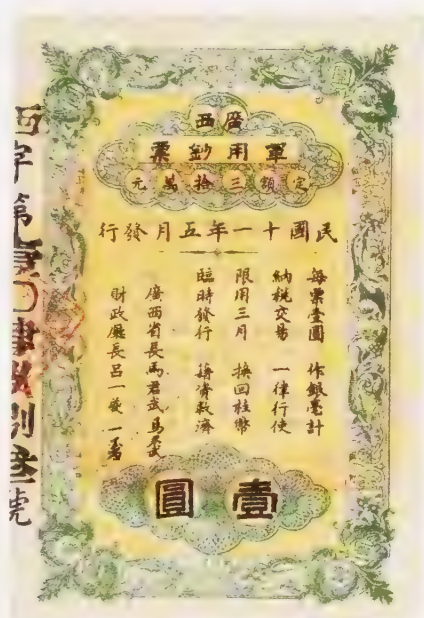 廣西
軍用鈔票
定額三拾萬元
民國十一年五月發行
每票壹圓 作銀毫計
納稅交易 一律行使
限用三月 換回桂幣
臨時發行 接濟救濟
廣西省長馬君武 馬君武
財政廳長呂一夔
壹圓
西字第
號